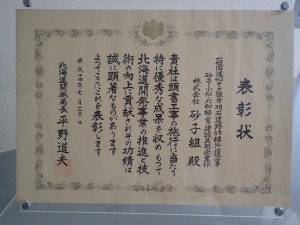 表彰状
株式会社 砂子組 殿
貴社は頭書工事の施行に当り
特に優秀な成果を収めもつて
北海道開発事業の推進と技
術の向上に貢献されその功績は
誠に顕著なものがあります
よつてここにこれを表彰します
平成十四年七月三十一日
北海道開発局長 平野道夫